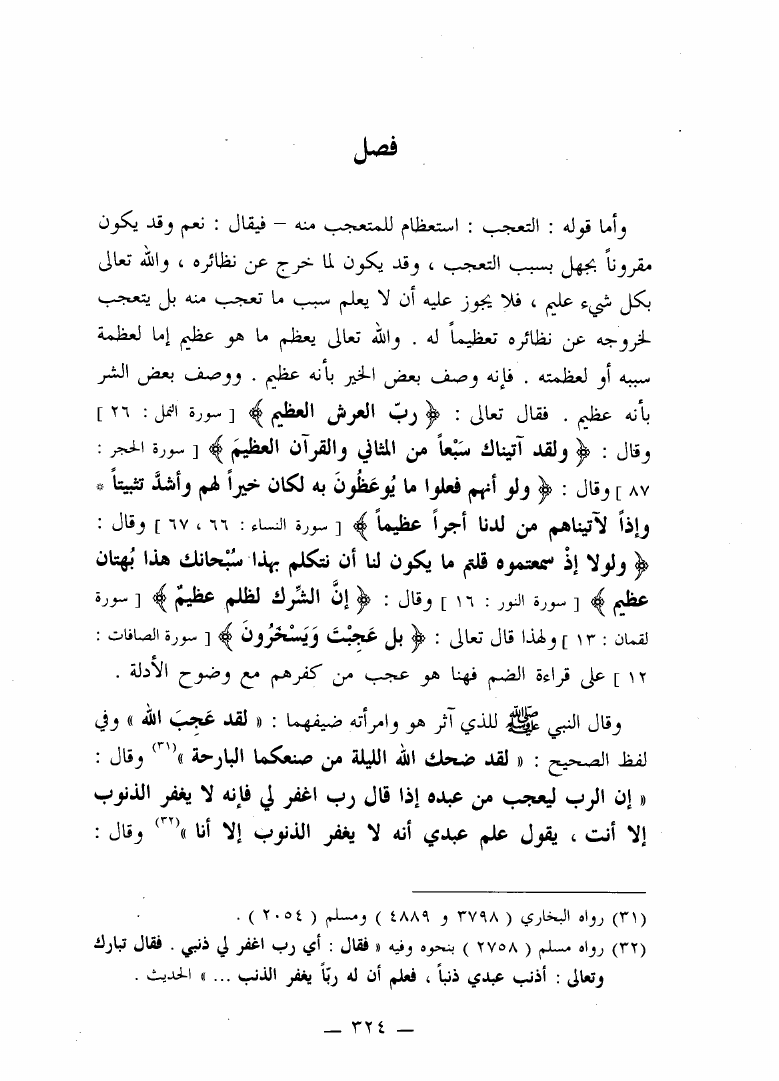 فصل
وأما قوله : التعجب : استعظام للمتعجب منه – فيقال : نعم وقد يكون
مقروناً بجهل بسبب التعجب ، وقد يكون لما خرج عن نظائره ، والله تعالى
بكل شيء عليم ، فلا يجوز عليه أن لا يعلم سبب ما تعجب منه بل يتعجب
لخروجه عن نظائره تعظيماً له . والله تعالى يعظم ما هو عظيم إما لعظمة
سببه أو لعظمته . فإنه وصف بعض الخير بأنه عظيم . ووصف بعض الشر
بأنه عظيم . فقال تعالى : ﴿ ربّ العرش العظيم ﴾ [ سورة النمل : ٢٦ ]
وقال : ﴿ ولقد آتيناك سَبْعاً من المثاني والقرآن العظيمَ ﴾ [ سورة الحجر :
٨٧ ] وقال : ﴿ ولو أنهم فعلوا ما يُوعَظُونَ به لكان خيراً لهم وأشدَّ تثبيتاً *
وإذاً لآتيناهم من لدنا أجراً عظيماً ﴾ [ سورة النساء : ٦٦ ، ٦٧ ] وقال :
﴿ ولولا إذْ سمعتموه قلتم ما يكون لنا أن نتكلم بهذا سُبْحانك هذا بُهتان
عظيم ﴾ [ سورة النور : ١٦ ] وقال : ﴿ إنَّ الشِّرك لظلم عظيمٌ ﴾ [ سورة
لقمان : ١٣ ] ولهذا قال تعالى : ﴿ بل عَجِبْتَ وَيَسْخَرُونَ ﴾ [ سورة الصافات :
١٢ ] على قراءة الضم فهنا هو عجب من كفرهم مع وضوح الأدلة .
وقال النبي ﷺ للذي آثر هو وامرأته ضيفهما : « لقد عَجِبَ الله » وفي
لفظ الصحيح : « لقد ضحك الله الليلة من صنعكما البارحة »(٣١) وقال :
« إن الرب ليعجب من عبده إذا قال رب اغفر لي فإنه لا يغفر الذنوب
إلا أنت ، يقول علم عبدي أنه لا يغفر الذنوب إلا أنا »(٣٢) وقال :
(٣١) رواه البخاري ( ٣٧٩٨ و ٤٨٨٩ ) ومسلم ( ٢٠٥٤ ) .
(٣٢) رواه مسلم ( ٢٧٥٨ ) بنحوه وفيه « فقال : أي رب اغفر لي ذنبي . فقال تبارك
وتعالى : أذنب عبدي ذنباً ، فعلم أن له ربّاً يغفر الذنب ... » الحديث .
— ٣٢٤ —